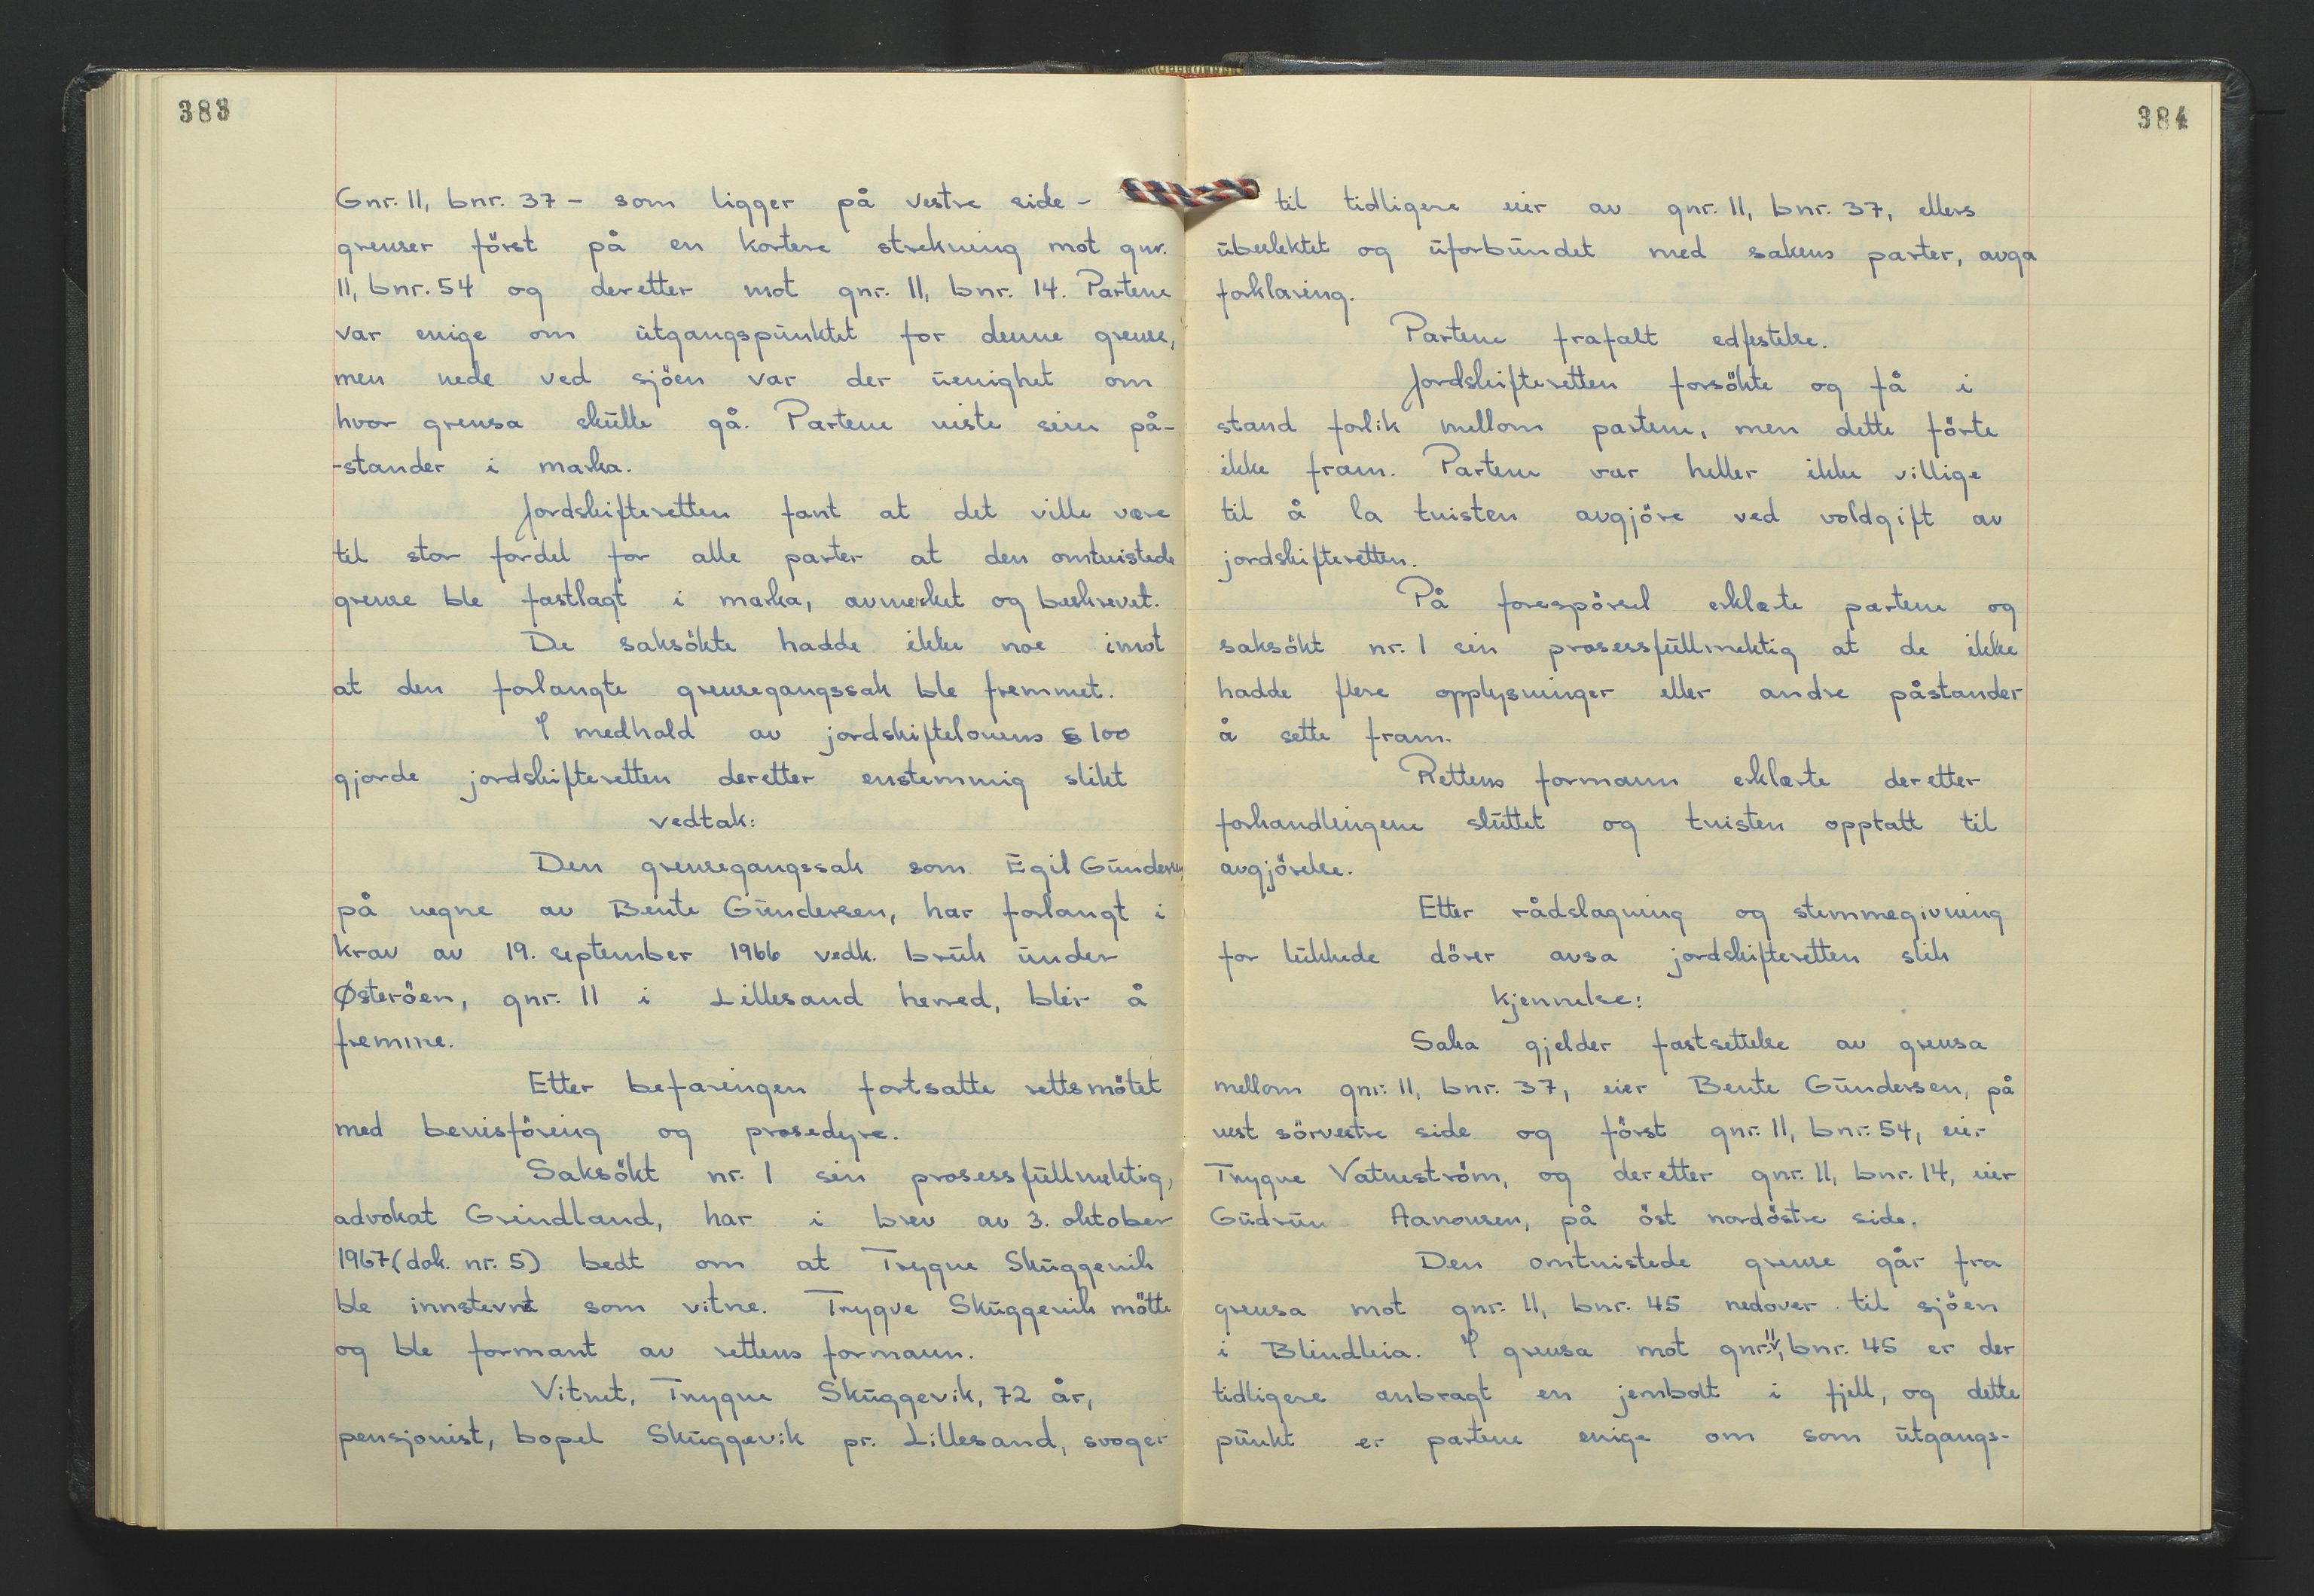 383
Gnr. 11, bnr. 37 - som ligger på vestre side -
grenser först på en kortere strekning mot gnr.
11, bnr. 54 og deretter mot gnr. 11, bnr. 14. Partene
var enige om utgangspunktet for denne grense,
men nede ved sjöen var der uenighet om
hvor grensa skulle gå. Partene viste sine på-
-stander i marka.
Jordskifteretten fant at det ville være
til stor fordel for alle parter at den omtvistede
grense ble fastlagt i marka, avmerket og beskrevet.
De saksökte hadde ikke noe imot
at den forlangte grensegangssak ble fremmet.
I medhold av jordskiftelovens § 100
gjorde jordskifteretten deretter enstemmig slikt
vedtak:
Den grensegangssak som Egil Gundersen,
på vegne av Bente Gundersen, har forlangt i
krav av 19. september 1966 vedk. bruk under
Østeröen, gnr. 11 i Lillesand herred, blir å
fremme.
Etter befaringen fortsatte rettsmötet
med bevisföring og prosedyre.
Saksökt nr. 1 sin prosessfullmektig,
advokat Grindland, har i brev av 3. oktober
1967 (dok. nr. 5) bedt om at Trygve Skuggevik
ble innstevnt som vitne. Trygve Skuggevik mötte
og ble formant av rettens formann.
Vitnet, Trygve Skuggevik, 72 år,
pensjonist, bopel Skuggevik pr. Lillesand, svoger
384
til tidligere eier av gnr. 11, bnr. 37, ellers
ubeslektet og uforbundet med sakens parter, avga
forklaring.
Partene frafalt edfestelse.
Jordskifteretten forsökte og få i
stand forlik mellom partene, men dette förte
ikke fram. Partene var heller ikke villige
til å la tvisten avgjöre ved voldgift av
jordskifteretten.
På forespörsel erklærte partene og
saksökt nr. 1 sin prosessfullmektig at de ikke
hadde flere opplysninger eller andre påstander
å sette fram.
Rettens formann erklærte deretter
forhandlingene sluttet og tvisten opptatt til
avgjörelse.
Etter rådslagning og stemmegivning
for lukkede dörer avsa jordskifteretten slik
kjennelse:
Saka gjelder fastsettelse av grensa
mellom gnr. 11, bnr. 37, eier Bente Gundersen, på
vest sörvestre side og först gnr. 11, bnr. 54, eier
Trygve Vatneström, og deretter gnr. 11, bnr. 14, eier
Gudrun Aanonsen, på öst nordöstre side.
Den omtvistede grense går fra
grensa mot gnr. 11, bnr. 45 nedover til sjöen
i Blindleia. I grensa mot gnr. 11, bnr. 45 er der
tidligere anbragt en jernbolt i fjell, og dette
punkt er partene enige om som utgangs-